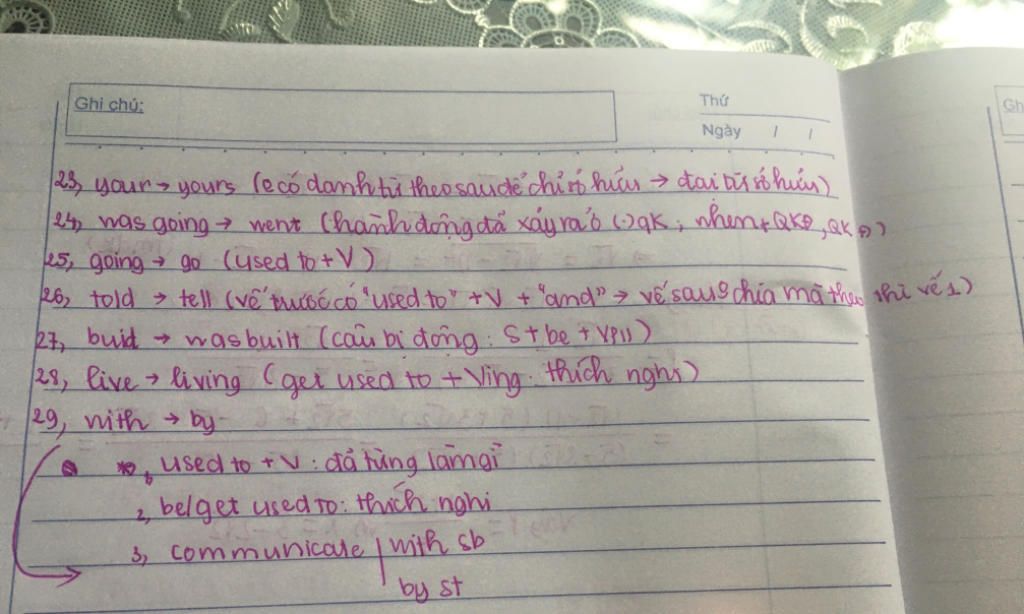 Ghi chú:
Thứ
Ngày / /
Gh
23, your → yours (e có danh từ theo sau để chỉ sở hữu → đại từ sở hữu)
24, was going → went (hành động đã xảy ra ở (.) qK; when + QKĐ, QKĐ)
25, going → go (used to + V)
26, told → tell (vế trước có "used to" + V + "and" → vế sau chia mà theo thì vế 1)
27, buid → was built (câu bị động: S + be + VPII)
28, live → living (get used to + Ving: thích nghi)
29, with → by
1, used to + V: đã từng làm gì
2, be/get used to: thích nghi
3, communicate with sb
by st